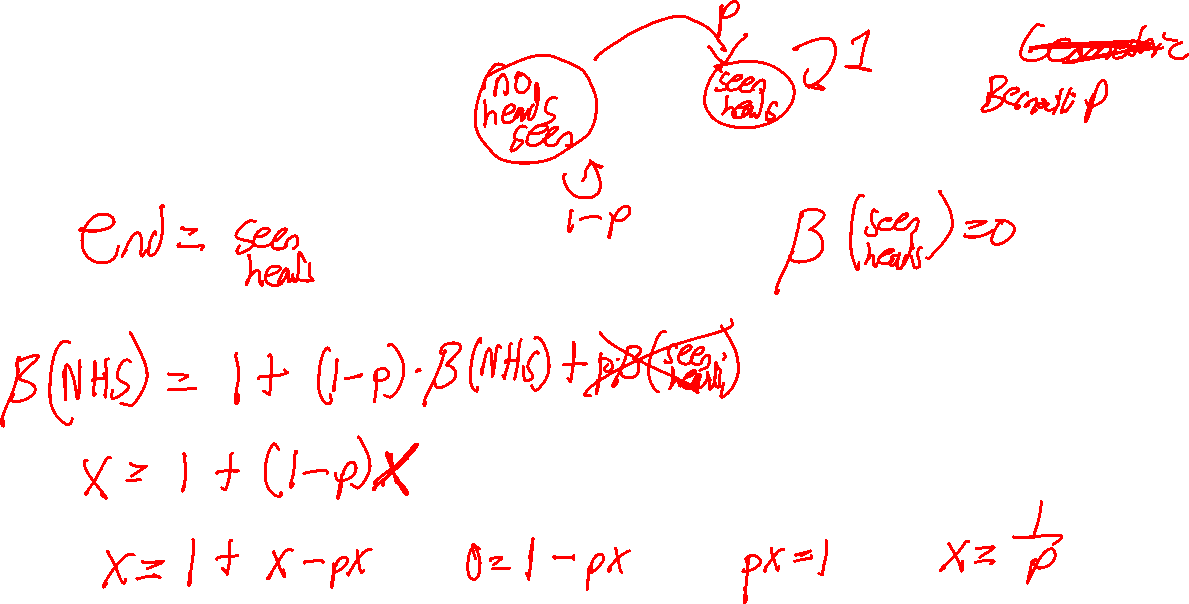 p
no heads seen
seen heads
1
1-p
Bernoulli p
end = seen heads
β(seen heads)=0
β(NHS) = 1 + (1-p)·β(NHS) + p·β(seen heads)
x = 1 + (1-p)x
x = 1 + x - px    0 = 1 - px    px = 1    x = 1/p